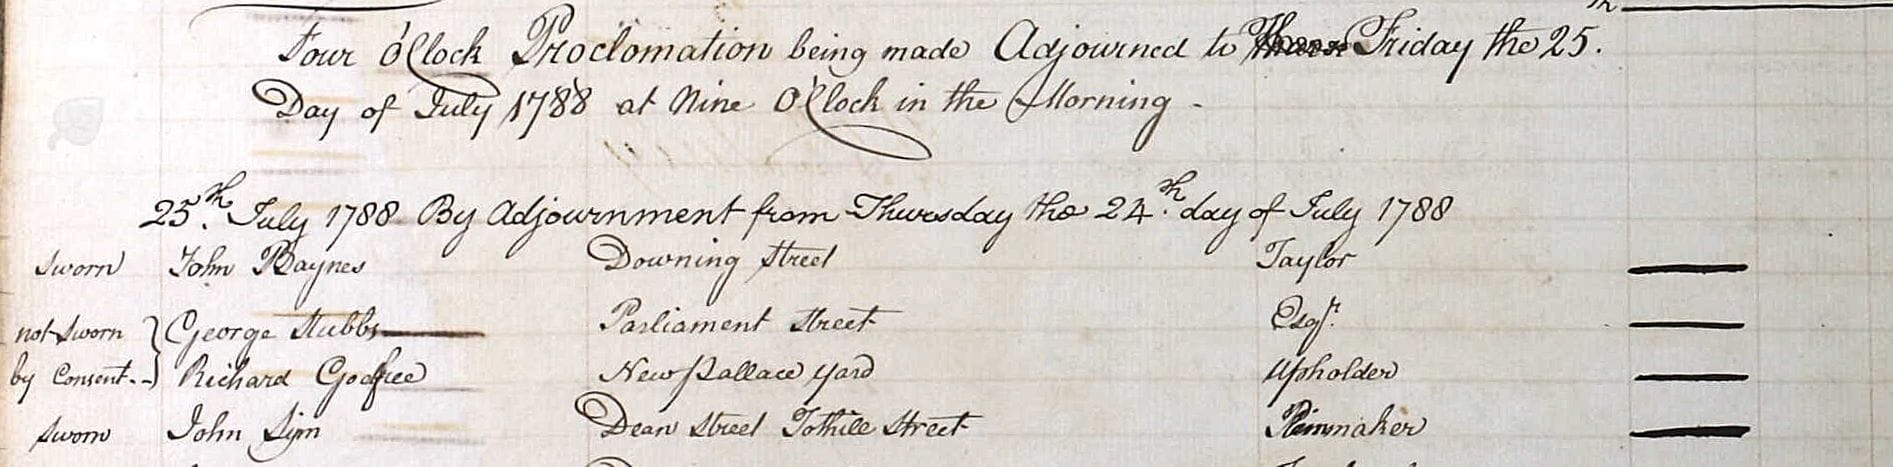 Four o'Clock Proclomation being made Adjourned to Friday the 25.
Day of July 1788 at Nine O'Clock in the Morning -
25.th July 1788 By Adjournment from Thursday the 24.th day of July 1788
sworn John Baynes Downing Street Taylor
not sworn George Stubbs Parliament Street Esqr.
by Consent Richard Godfree New Pallace Yard Upholder
sworn John Sym Dean Street Tothill Street